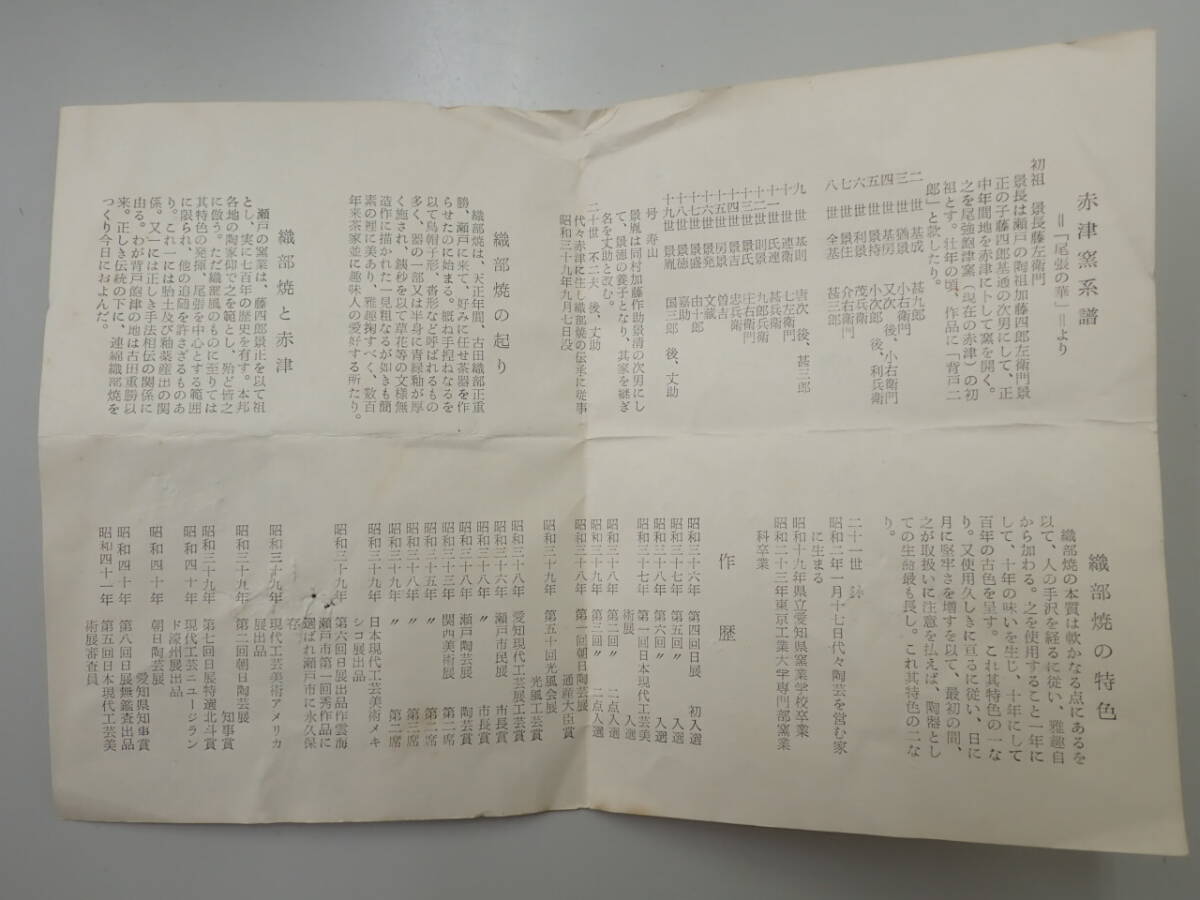 赤津窯系譜
＝「尾張の華」＝より
初祖　景長藤左衛門
景長は瀬戸の陶祖加藤四郎左衛門景
正の子藤四郎基通の次男にして、正
中年間地を赤津に卜して窯を開く。
之を尾強飽津窯（現在の赤津）の初
祖とす。壮年の頃、作品に「背戸二
郎」と款したり。
二　世　基成　甚九郎
三　世　猶景　小右衛門
四　世　基房　又次　後、小右衛門
五　世　景持　小次郎　後、利兵衛
六　世　利景　茂兵衛
七　世　景住　介右衛門
八　世　全基　甚三郎
九　世　基則　唐次　後、甚三郎
十　世　連衛　七左衛門
十一世　氏連　甚兵衛
十二世　則景　九郎兵衛
十三世　景氏　庄右衛門
十四世　景吉　忠兵衛
十五世　房景　曽吉
十六世　景発　文蔵
十七世　景盛　由十郎
十八世　景徳　嘉助
十九世　景胤　国三郎　後、丈助
号　寿山
景胤は同村加藤作助景清の次男にし
て、景徳の養子となり、其家を継ぎ
名を丈助と改む。
二十世　不二夫　後、丈助
代々赤津に生し織部焼の伝承に従事
昭和三十九年九月七日没
織部焼の起り
織部焼は、天正年間、古田織部正重
勝、瀬戸に来て、好みに任せ茶器を作
らせたのに始まる。概ね手捏ねなるを
以て烏帽子形、沓形など呼ばれるもの
多く、器の一部又は半身に青緑釉が厚
く施され、銕砂を以て草花等の文様無
造作に描かれた一見粗なるが如きも簡
素の裡に美あり、雅趣掬すべく、数百
年来茶家並に趣味人の愛好する所たり。
織部焼と赤津
瀬戸の窯業は、藤四郎景正を以て祖
とし、実に七百年の歴史を有す。本邦
各地の陶家仰で之を範とし、殆ど皆之
に倣う。ただ織部風のものに至りては
其特色の発揮、尾張を中心とする範囲
に限られ、他の追随を許さざるものあ
り。これ一には胎土及び釉薬産出の関
係。又一には正しき手法相伝の関係に
由る。わが背戸飽津の地は古田重勝以
来。正しき伝統の下に、連綿織部焼を
つくり今日におよんだ。
織部焼の特色
織部焼の本質は軟かなる点にあるを
以て、人の手沢を経るに従い、雅趣自
から加わる。之を使用すること一年に
して、十年の味いを生じ、十年にして
百年の古色を呈す。これ其特色の一な
り。又使用久しきに亘るに従い、日に
月に堅牢さを増すを以て、最初の間、
之が取扱いに注意を払えば、陶器とし
ての生命最も長し。これ其特色の二な
り。
二十一世
昭和二年一月十七日代々陶芸を営む家
に生まる
昭和十九年県立愛知県窯業学校卒業
昭和二十三年東京工業大学専門部窯業
科卒業
作歴
昭和三十六年　第四回日展　初入選
昭和三十七年　第五回〃　入選
昭和三十八年　第六回〃　入選
昭和三十七年　第一回日本現代工芸美
術展　入選
昭和三十八年　第二回〃　二点入選
昭和三十九年　第三回〃　二点入選
昭和三十八年　第一回朝日陶芸展
通産大臣賞
昭和三十九年　第五十回光風会展
光風工芸賞
昭和三十八年　愛知現代工芸展工芸賞
昭和三十六年　瀬戸市民展　市長賞
昭和三十八年　〃　市長賞
昭和三十八年　瀬戸陶芸展　陶芸賞
昭和三十三年　関西美術展　第二席
昭和三十五年　〃　第二席
昭和三十九年　〃　第三席
昭和三十九年　〃　第二席
昭和三十九年　日本現代工芸美術メキ
シコ展出品
昭和三十九年　第六回日展出品作雲海
瀬戸市第一回秀作品に
選ばれ瀬戸市に永久保
存
昭和三十九年　現代工芸美術アメリカ
展出品
昭和三十九年　第二回朝日陶芸展
知事賞
昭和三十九年　第七回日展特選北斗賞
昭和四十年　現代工芸ニュージラン
ド濠州展出品
昭和四十年　朝日陶芸展
愛知県知事賞
昭和四十年　第八回日展無鑑査出品
昭和四十一年　第五回日本現代工芸美
術展審査員